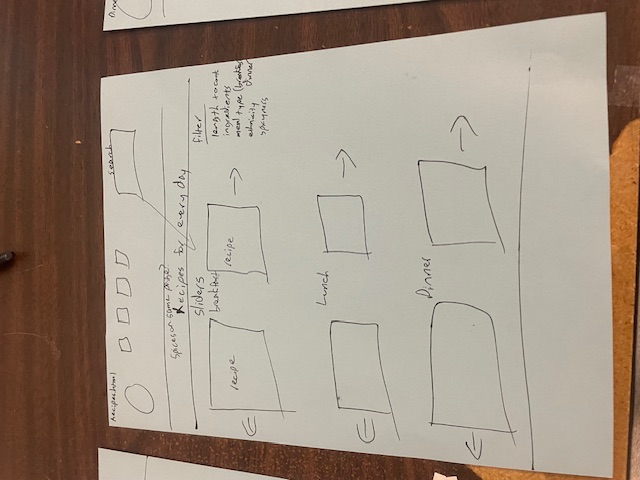 Recipes.html
search
Spices on same page?
Recipes for every day
sliders
breakfast
recipe
recipe
filter
length to cook
ingredients
meal type (breakfast
dinner
ethnicity
spicyness
Lunch
Dinner